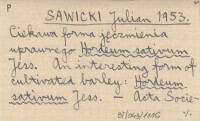 P P
SAWICKI Julian 1953.
Ciekawa forma jęczmienia
uprawnego Hordeum sativum
Jess. An interesting form of
cultivated barley: Hordeum
sativum Jess. — Acta Socie-